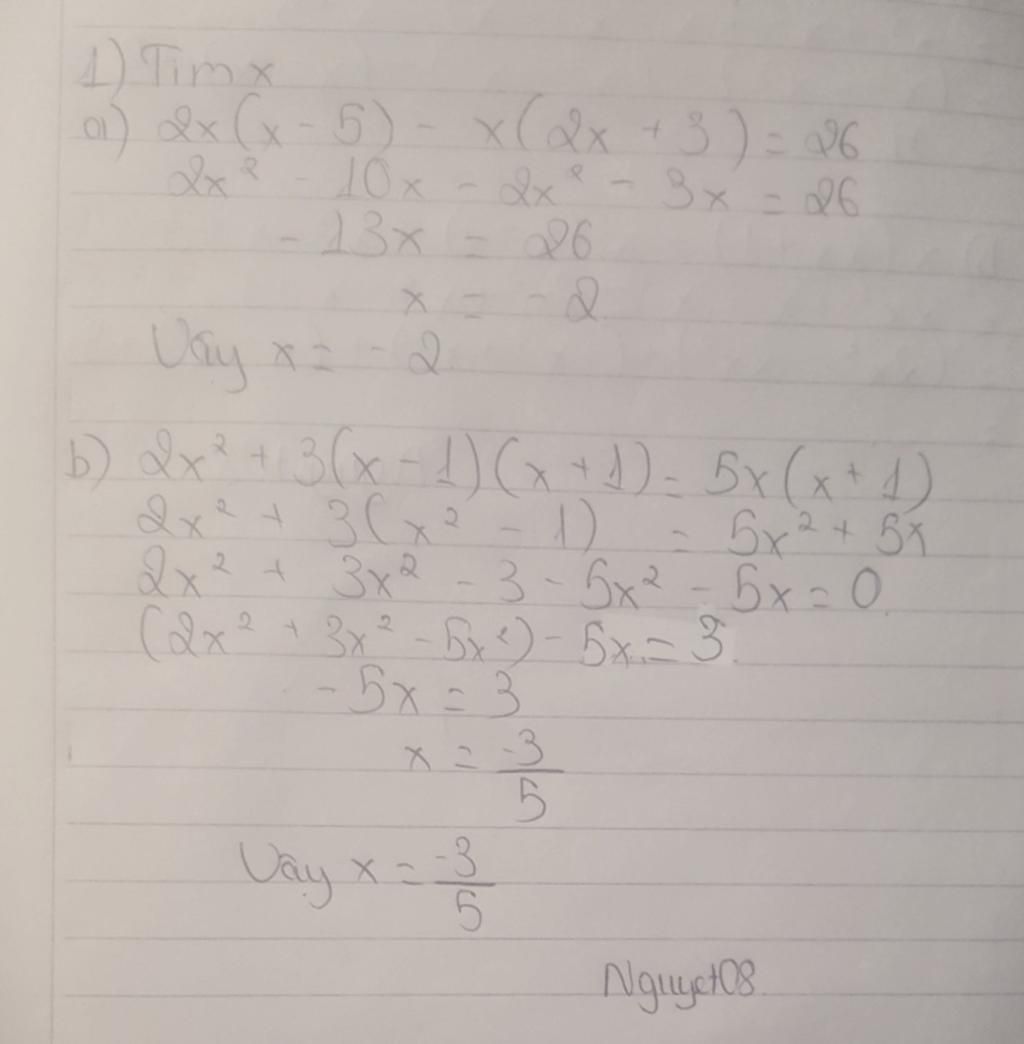 1) Tìm x
a) 2x(x - 5) - x(2x + 3) = 26
2x² - 10x - 2x² - 3x = 26
- 13x = 26
x = - 2
Vậy x = - 2
b) 2x² + 3(x - 1)(x + 1) = 5x(x + 1)
2x² + 3(x² - 1) = 5x² + 5x
2x² + 3x² - 3 - 5x² - 5x = 0
(2x² + 3x² - 5x²) - 5x = 3
- 5x = 3
x = -3/5
Vậy x = -3/5
Nguyet08